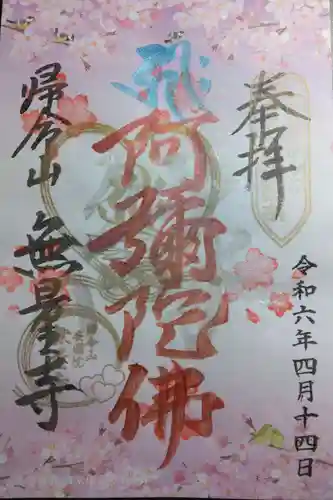 奉拝
令和六年四月十四日
阿彌陀佛
帰命山 無量寺